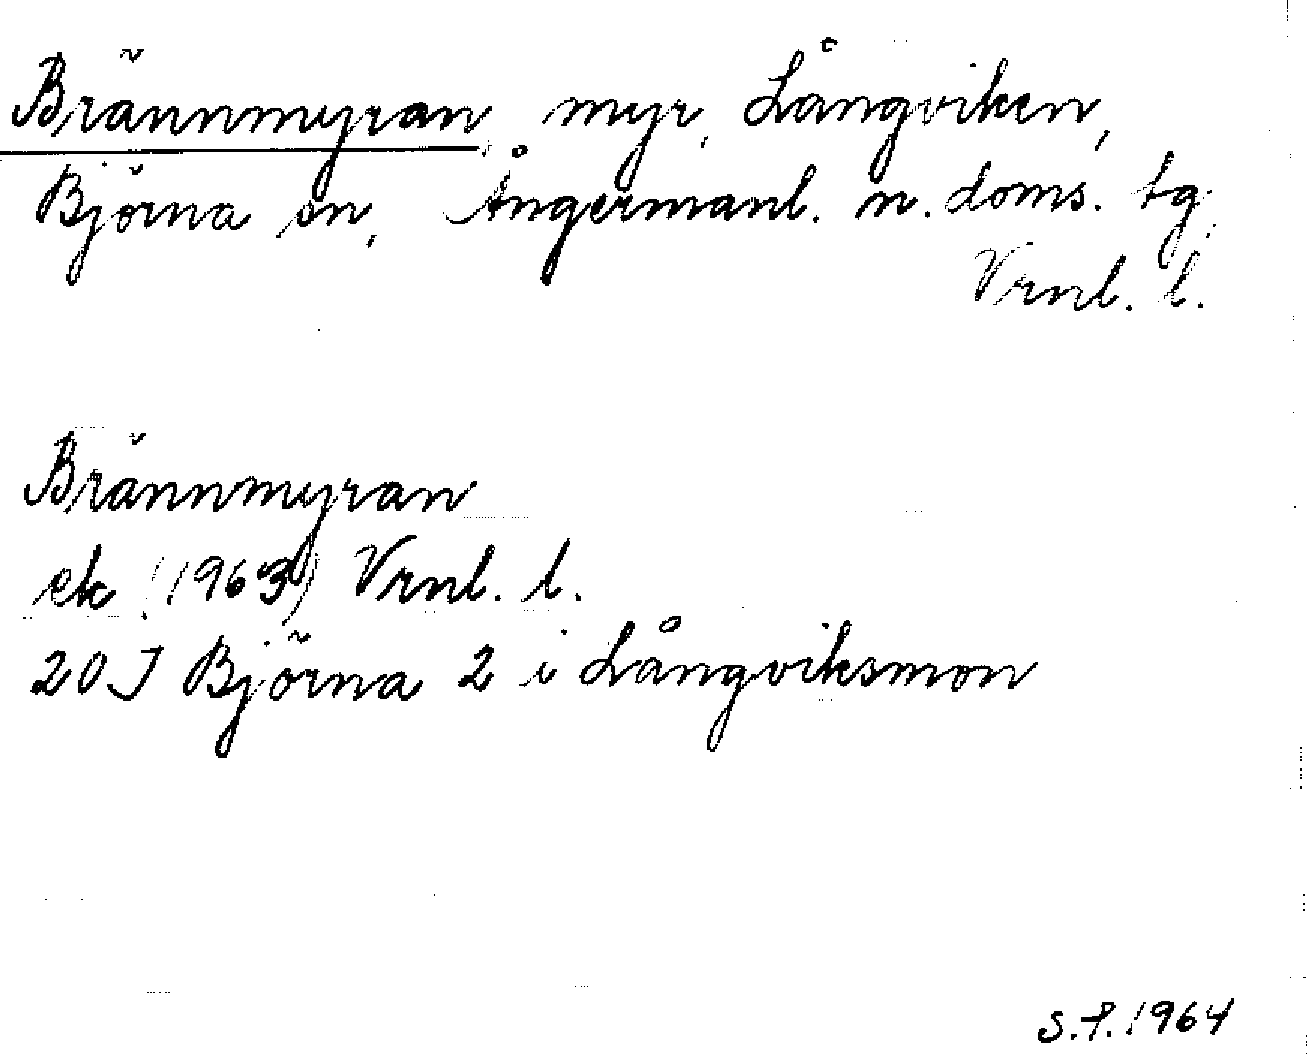 Brännmyran, myr, Långviken,
Björna sn, Ångermanl. n. doms. tg,
Vrnl. l.
Brännmyran
ek (1963) Vrnl. l.
20J Björna 2 i Långviksmon
S.P. 1964